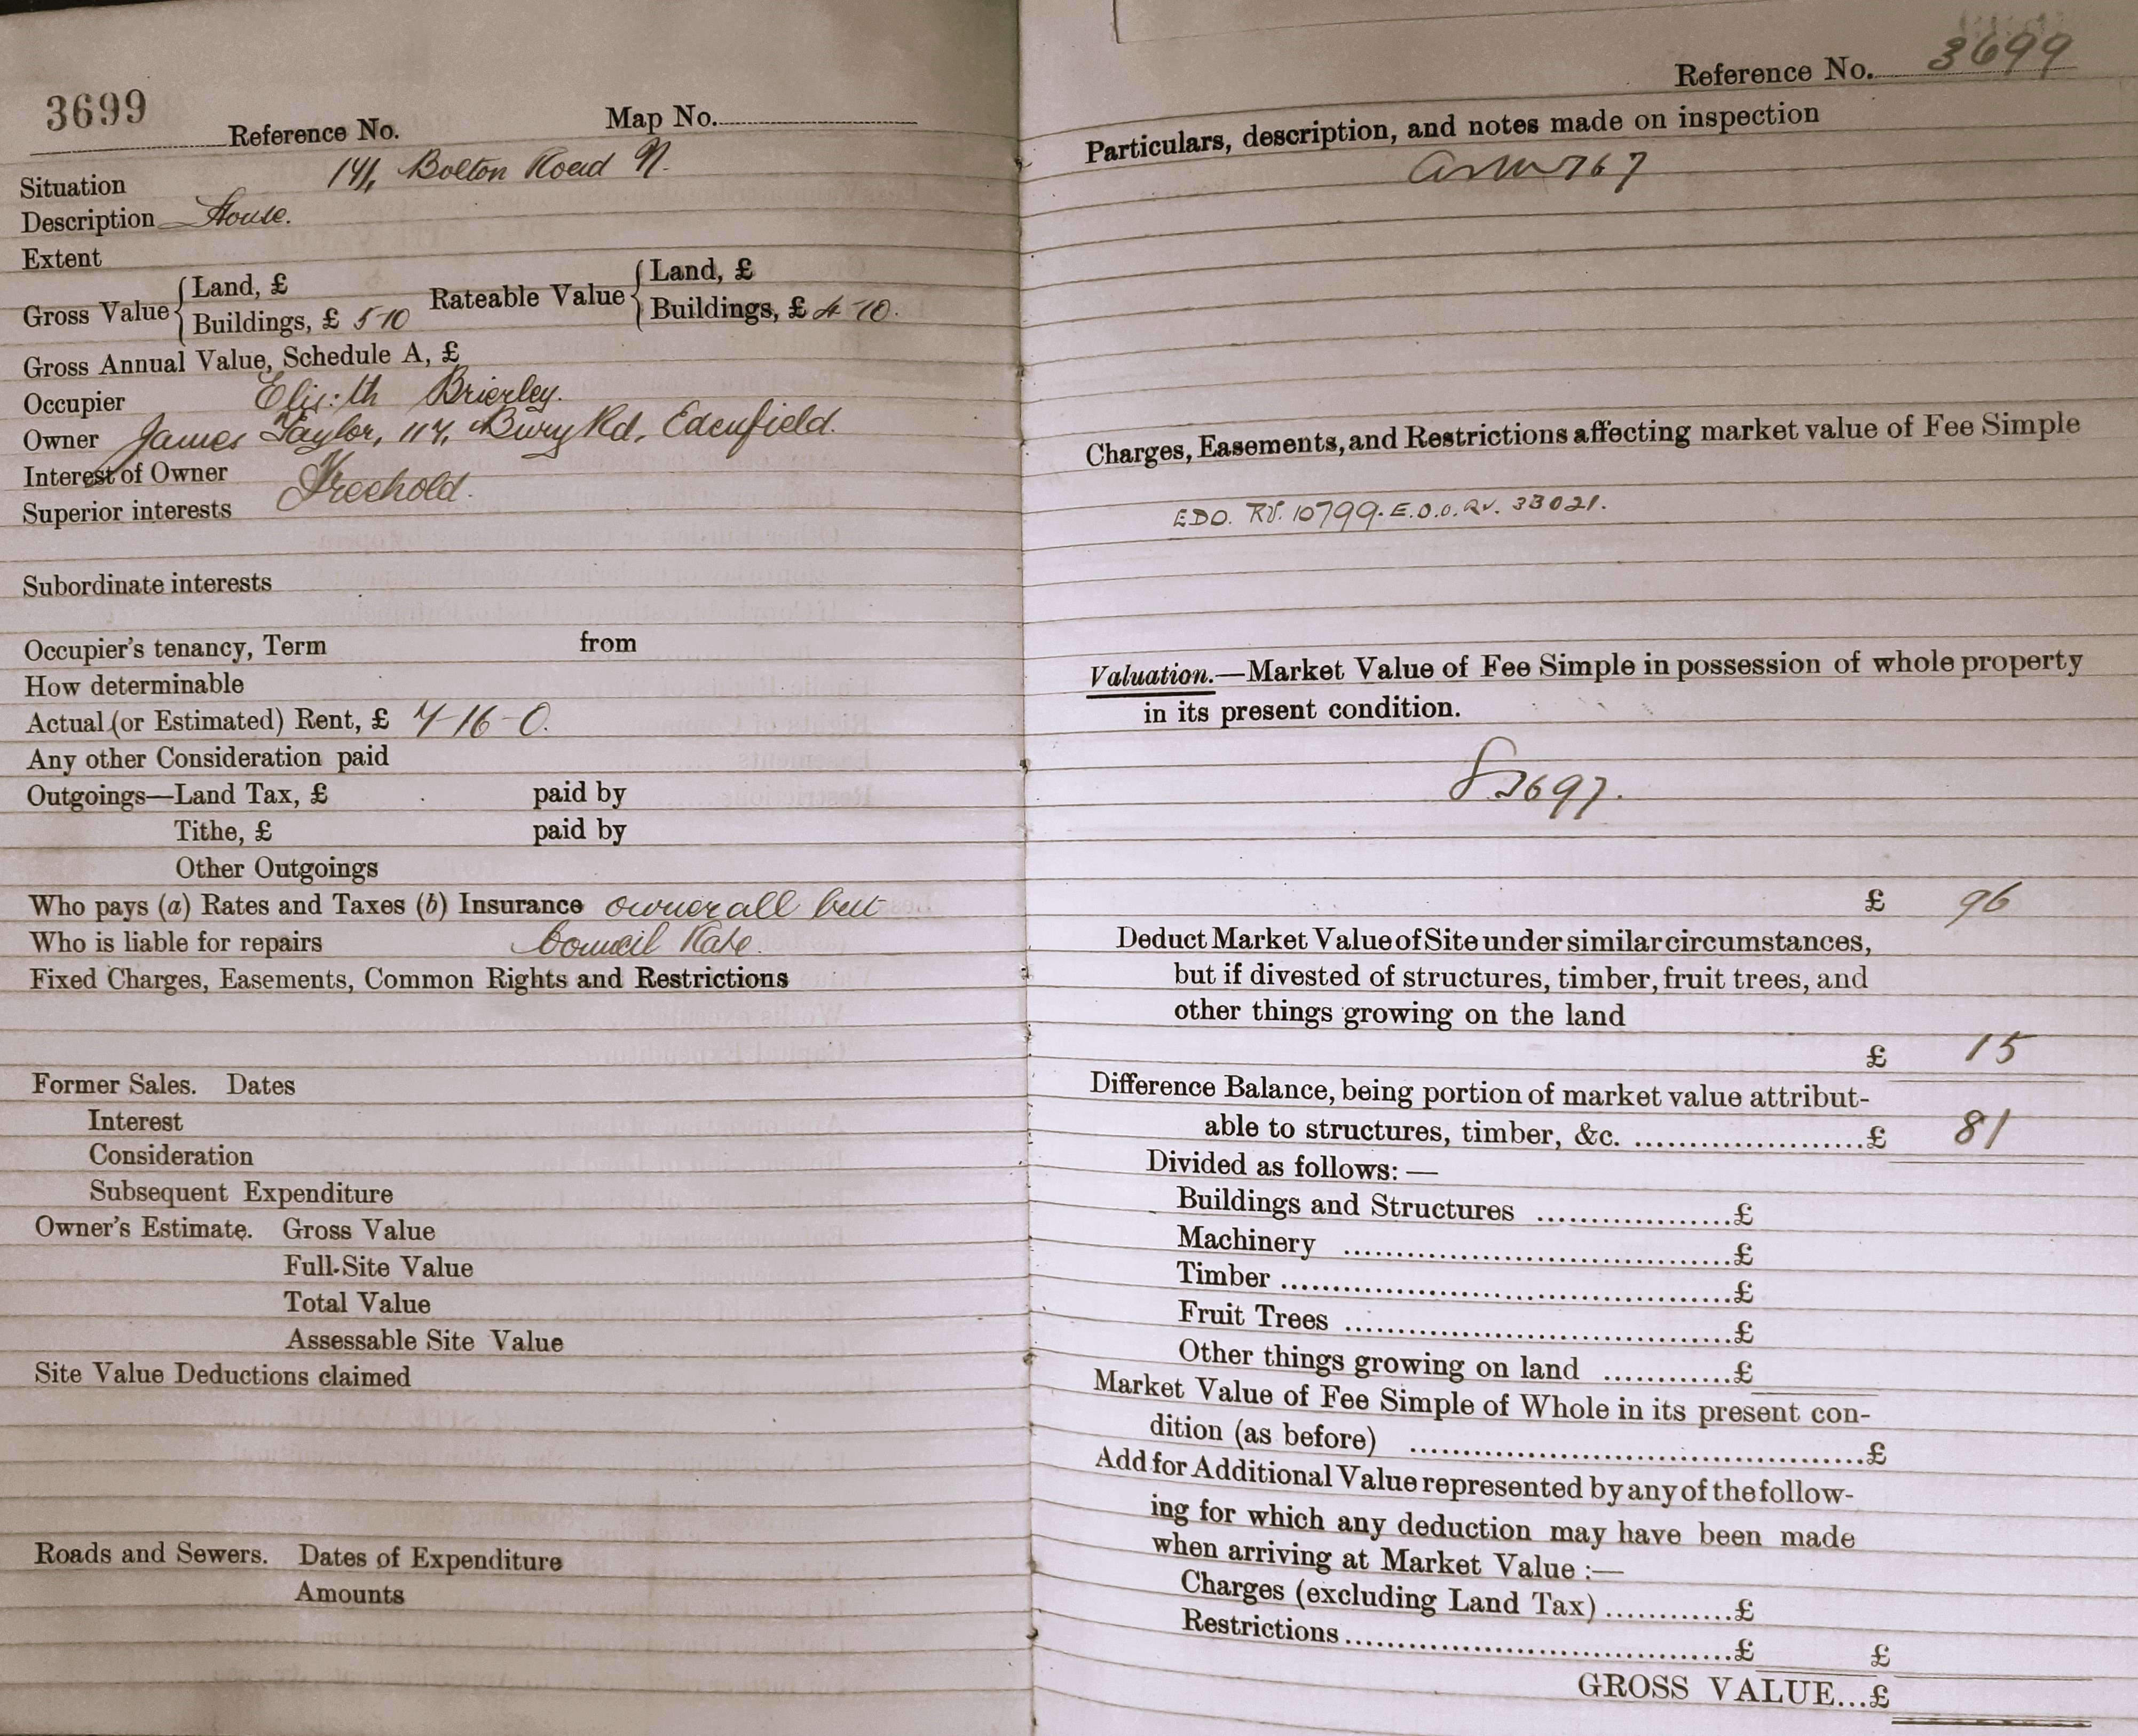 3699
Reference No. Map No.
Situation 141, Bolton Road N.
Description House.
Extent
Gross Value { Land, £
Buildings, £ 5-10
Rateable Value { Land, £
Buildings, £ 4-10.
Gross Annual Value, Schedule A, £
Occupier Eliz:th Brierley.
Owner James Taylor, 117, Bury Rd, Edenfield.
Interest of Owner Freehold.
Superior interests
Subordinate interests
Occupier's tenancy, Term from
How determinable
Actual (or Estimated) Rent, £ 7-16-0.
Any other Consideration paid
Outgoings—Land Tax, £ paid by
Tithe, £ paid by
Other Outgoings
Who pays (a) Rates and Taxes (b) Insurance owner all but
Who is liable for repairs Council Rate.
Fixed Charges, Easements, Common Rights and Restrictions
Former Sales. Dates
Interest
Consideration
Subsequent Expenditure
Owner's Estimate. Gross Value
Full Site Value
Total Value
Assessable Site Value
Site Value Deductions claimed
Roads and Sewers. Dates of Expenditure
Amounts
Reference No. 3699
Particulars, description, and notes made on inspection
Charges, Easements, and Restrictions affecting market value of Fee Simple
EDO. RV. 10799. E.D.O. RV. 33021.
Valuation.—Market Value of Fee Simple in possession of whole property
in its present condition.
£ 96
Deduct Market Value of Site under similar circumstances,
but if divested of structures, timber, fruit trees, and
other things growing on the land
£ 15
Difference Balance, being portion of market value attribut-
able to structures, timber, &c. ......................£ 81
Divided as follows:—
Buildings and Structures ...................£
Machinery ......................................£
Timber .............................................£
Fruit Trees ......................................£
Other things growing on land ............£
Market Value of Fee Simple of Whole in its present con-
dition (as before) .............................................£
Add for Additional Value represented by any of the follow-
ing for which any deduction may have been made
when arriving at Market Value :—
Charges (excluding Land Tax) ............£
Restrictions ......................................£ £
GROSS VALUE...£